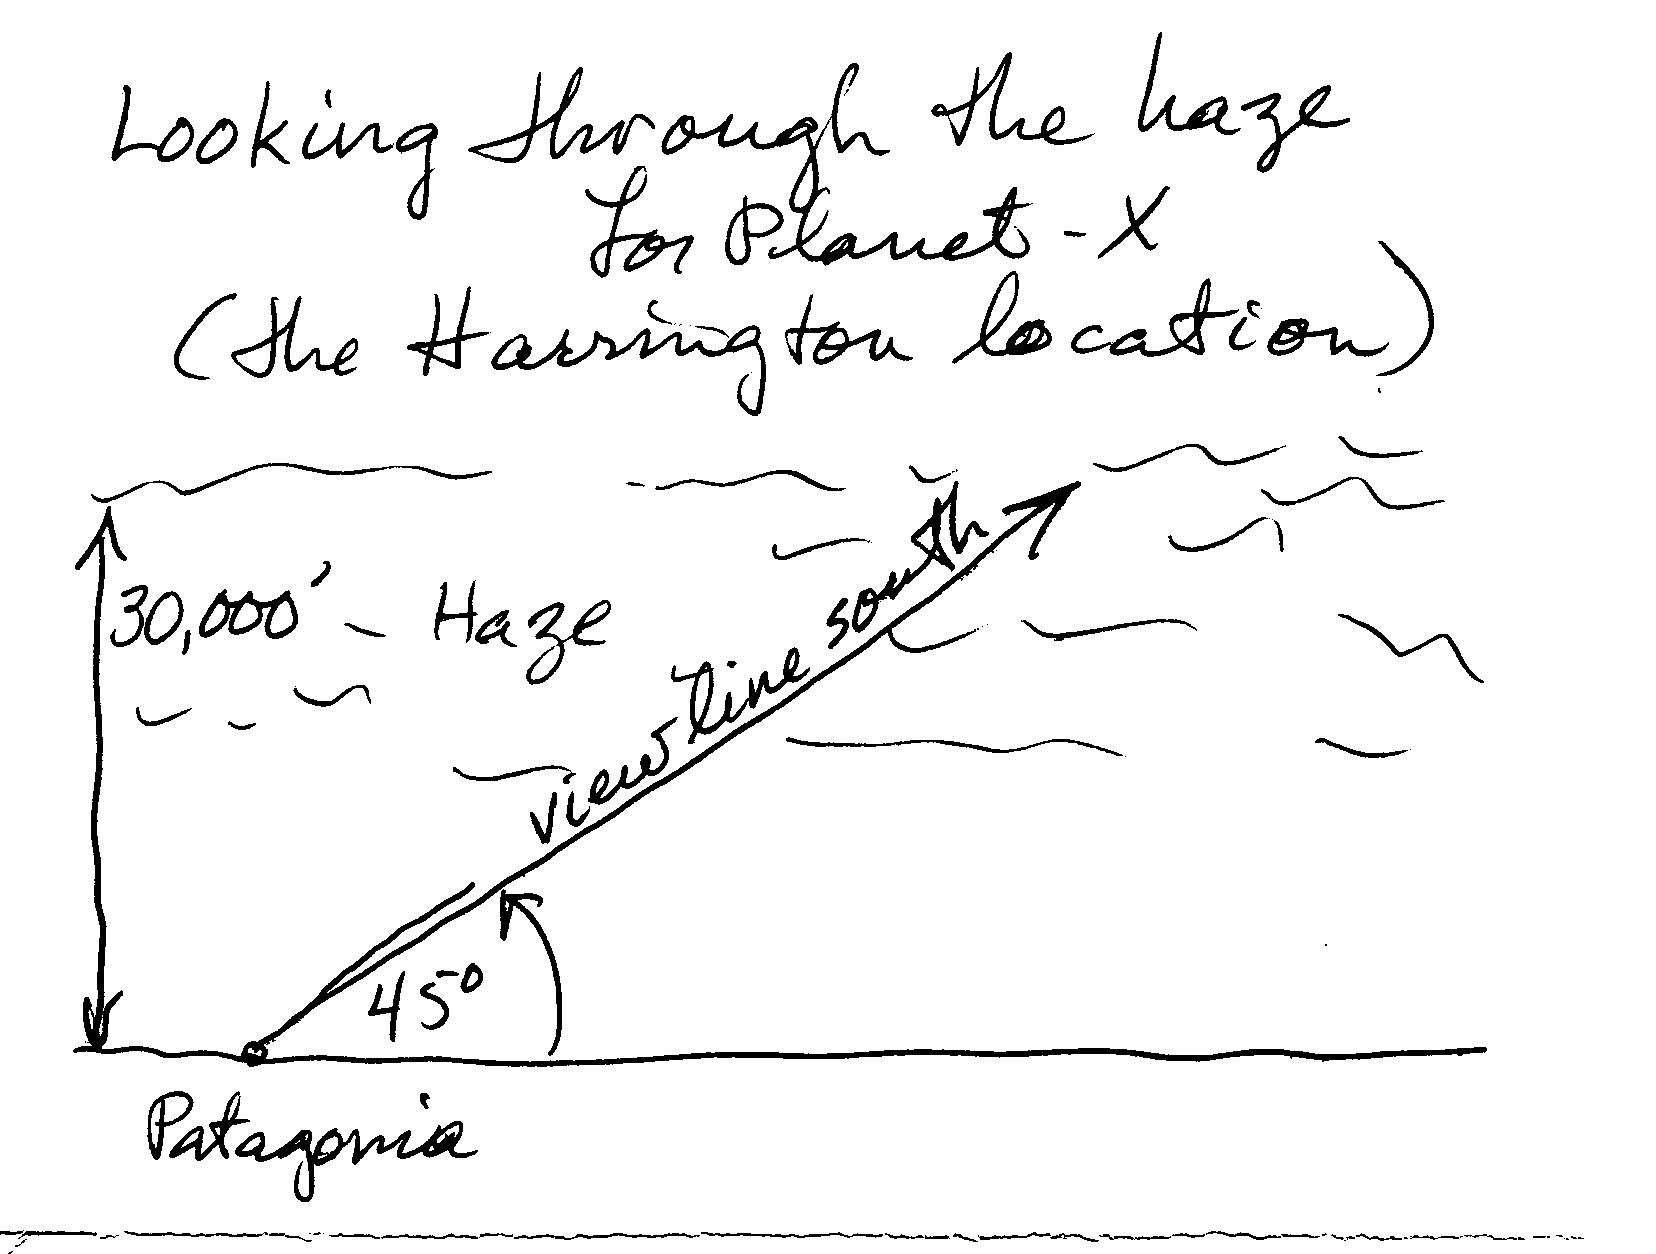 Looking through the haze
for Planet-X
(the Harrington location)
30,000' - Haze
view line south
45°
Patagonia